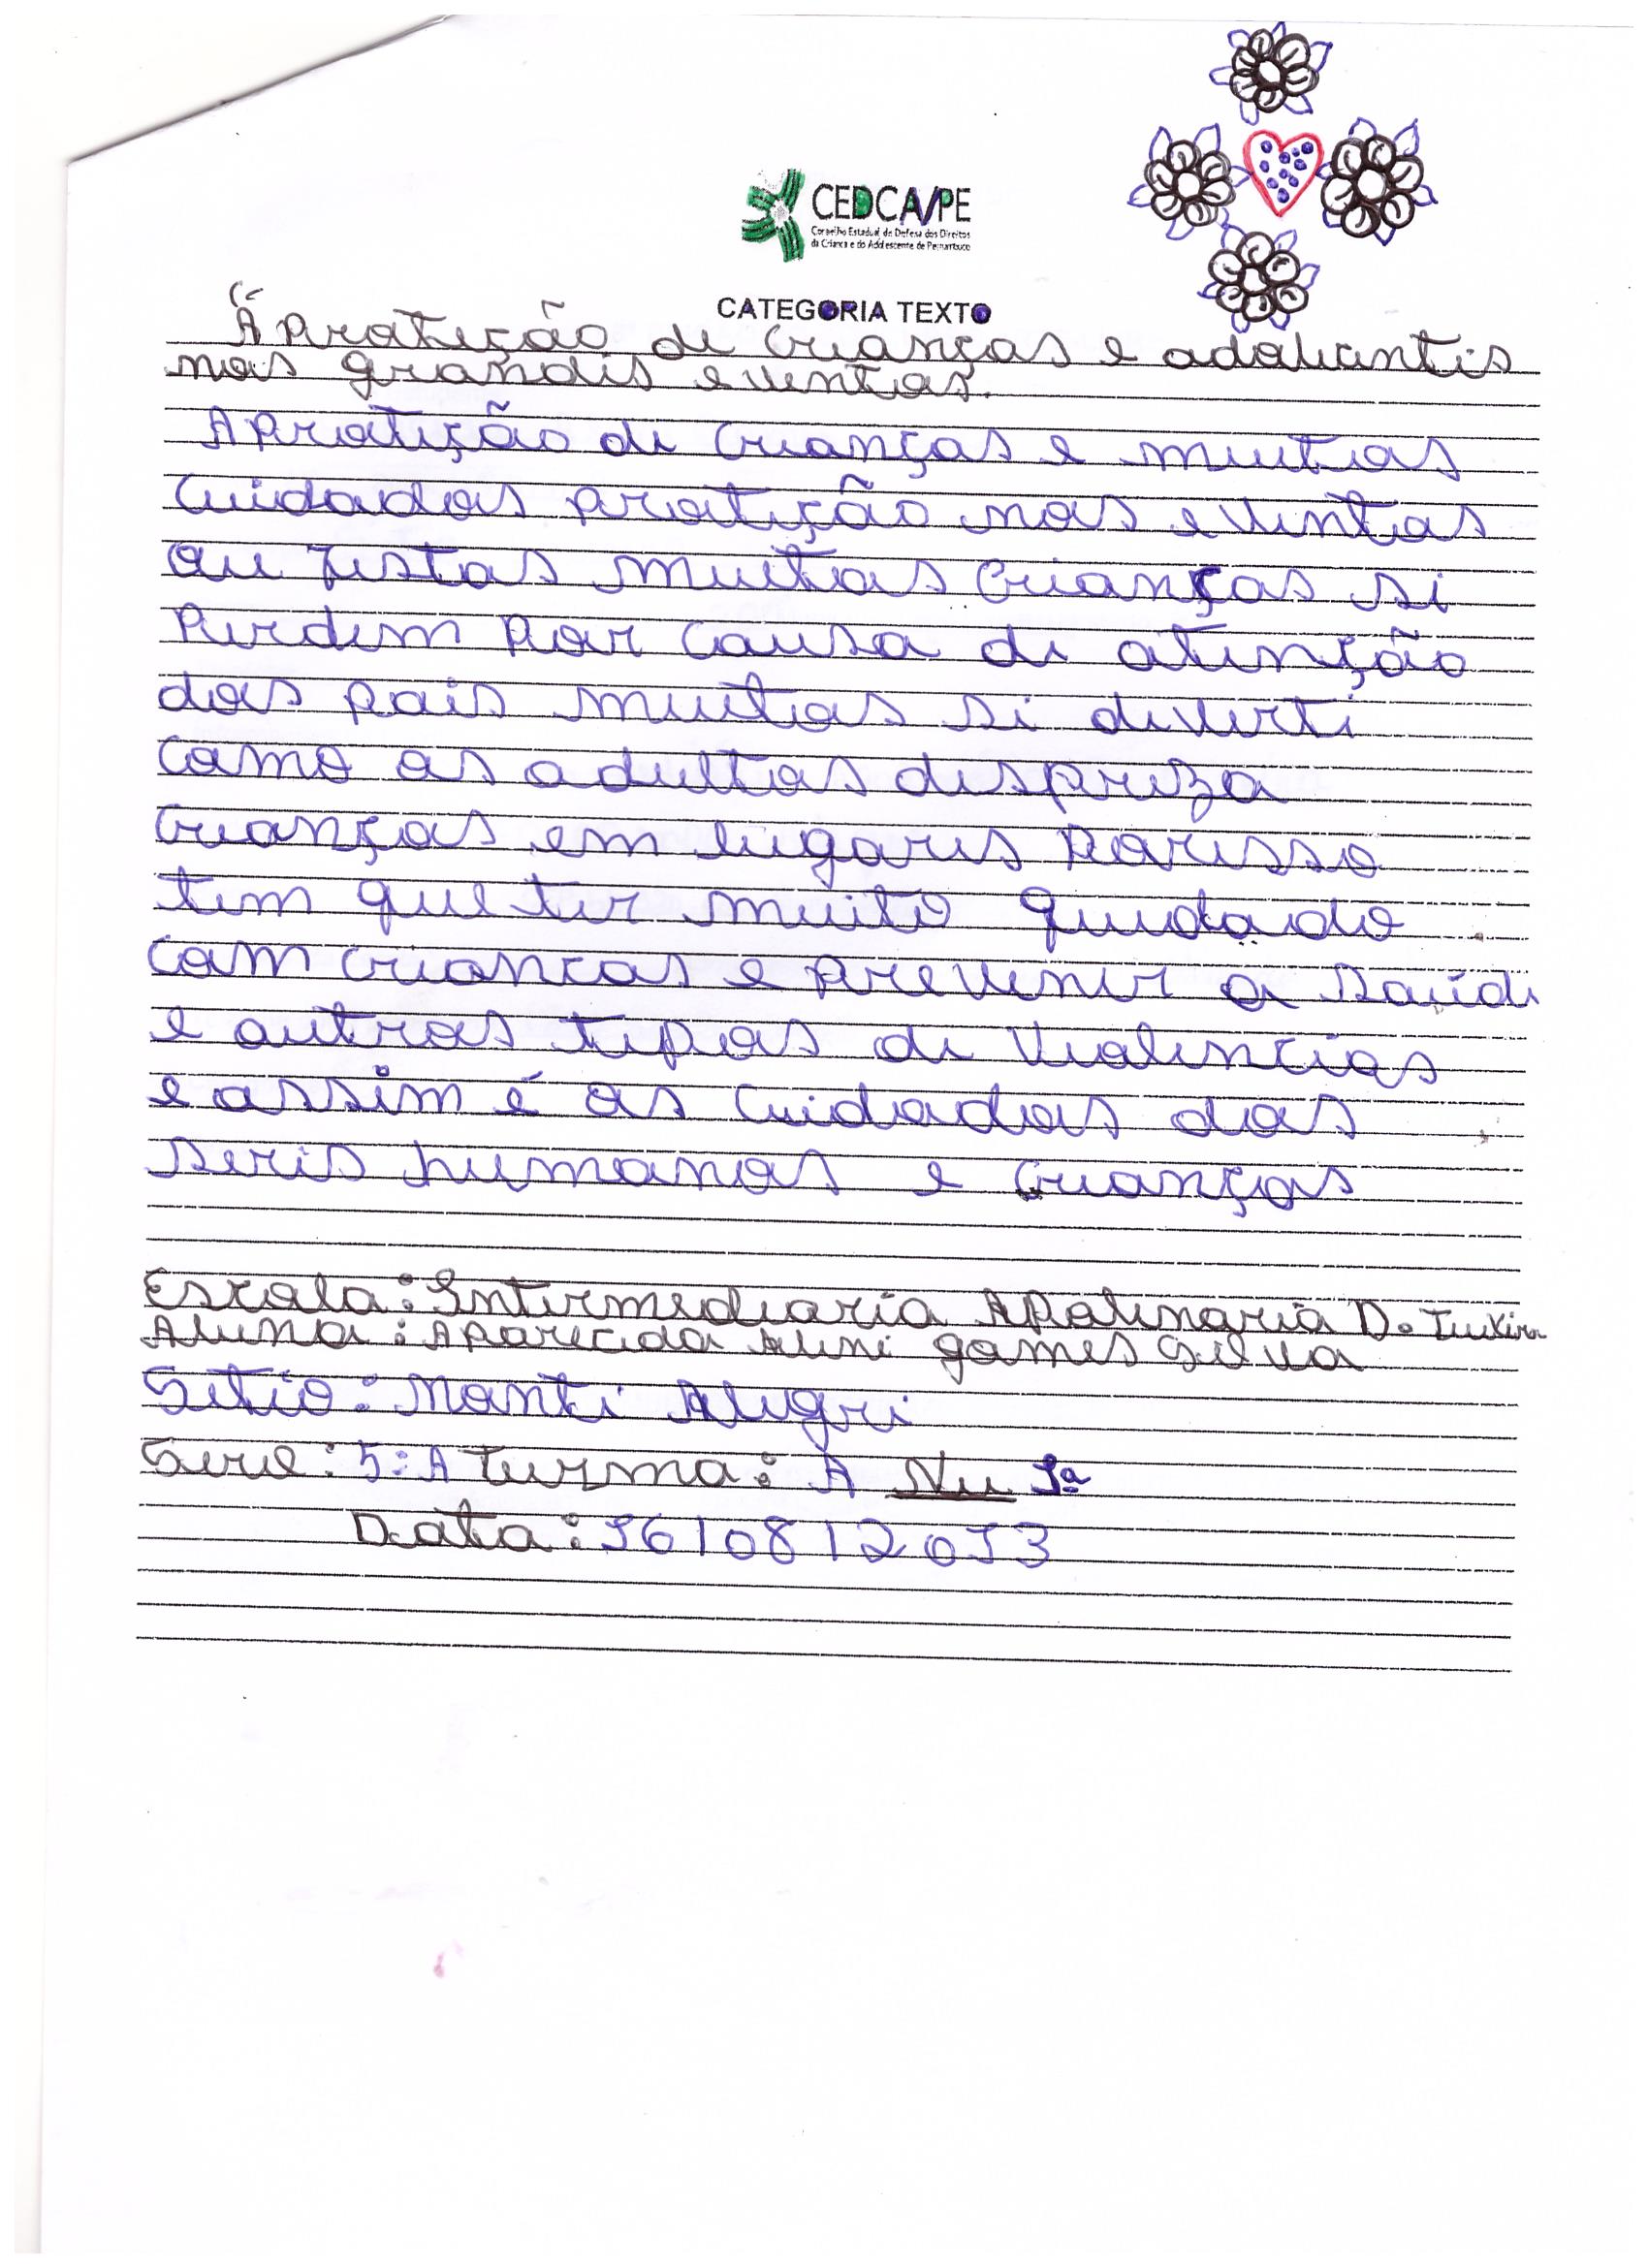 CEDCA/PE
Conselho Estadual de Defesa dos Direitos
da Criança e do Adolescente de Pernambuco
CATEGORIA TEXTO
A Proteção de Crianças e adolecentes
nos grandes eventos.
A Proteção de Crianças e muitos
Cuidados proteção nos eventos
ou festas muitas Crianças si
Perdem Por causa de atenção
dos pais muitos si diverti
como os adultos despreza
crianças em lugares Porisso
tem que ter muito quidado
com criancas e prevenir a saúde
e outros tipos de violencias
e assim é os cuidados dos
seres humanos e Crianças
Escola: Intermediaria Apolinaria D. Teixeira
Aluna: Aparecida Aline gomes Silva
Sitio: Monte Alegre
Serie: 5: A turma: A Nu 1ª
Data: 16/08/2013